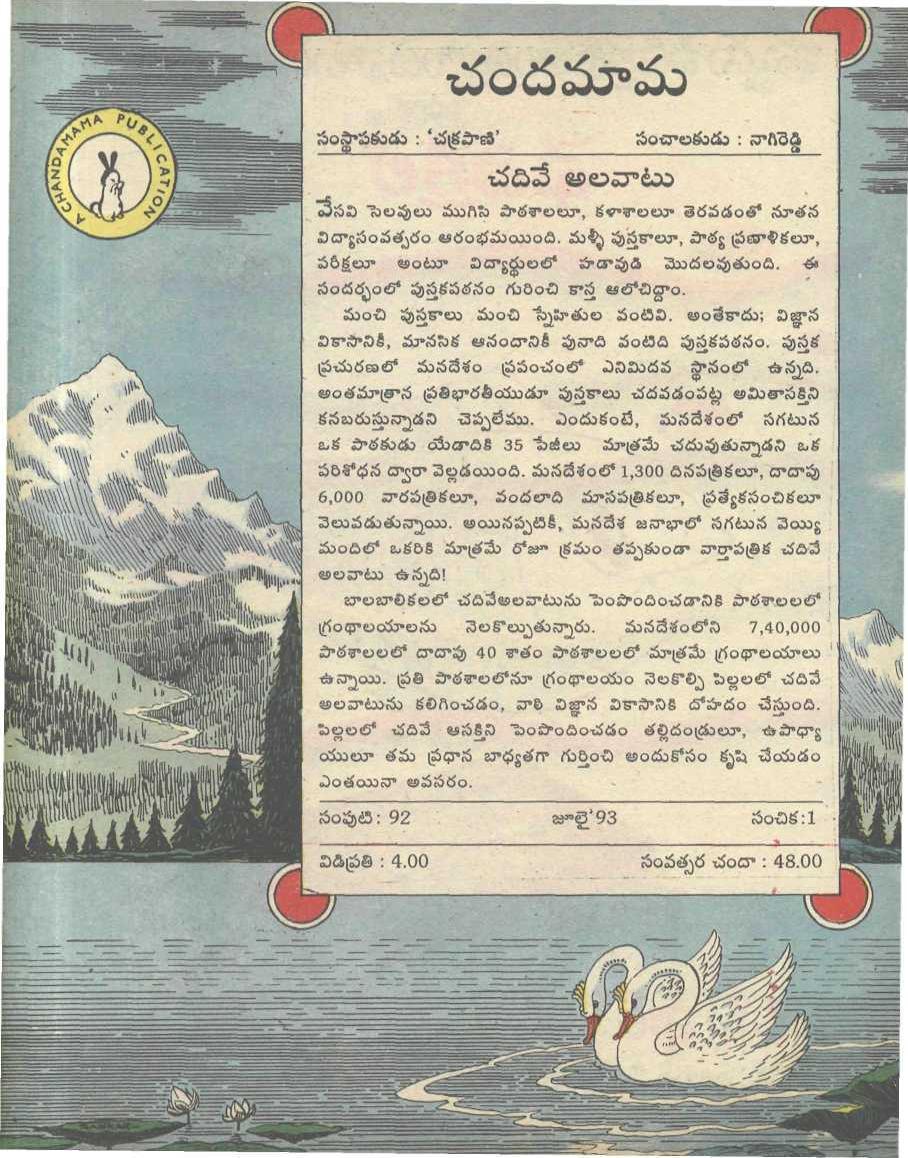 A CHANDAMAMA PUBLICATION
చందమామ
సంస్థాపకుడు : 'చక్రపాణి' సంచాలకుడు : నాగిరెడ్డి
చదివే అలవాటు
వేసవి సెలవులు ముగిసి పాఠశాలలూ, కళాశాలలూ తెరవడంతో నూతన
విద్యాసంవత్సరం ఆరంభమయింది. మళ్ళీ పుస్తకాలూ, పాఠ్య ప్రణాళికలూ,
పరీక్షలూ అంటూ విద్యార్థులలో హడావుడి మొదలవుతుంది. ఈ
సందర్భంలో పుస్తకపఠనం గురించి కాస్త ఆలోచిద్దాం.
మంచి పుస్తకాలు మంచి స్నేహితుల వంటివి. అంతేకాదు; విజ్ఞాన
వికాసానికీ, మానసిక ఆనందానికీ పునాది వంటిది పుస్తకపఠనం. పుస్తక
ప్రచురణలో మనదేశం ప్రపంచంలో ఎనిమిదవ స్థానంలో ఉన్నది.
అంతమాత్రాన ప్రతిభారతీయుడూ పుస్తకాలు చదవడంపట్ల అమితాసక్తిని
కనబరుస్తున్నాడని చెప్పలేము. ఎందుకంటే, మనదేశంలో సగటున
ఒక పాఠకుడు యేడాదికి 35 పేజీలు మాత్రమే చదువుతున్నాడని ఒక
పరిశోధన ద్వారా వెల్లడయింది. మనదేశంలో 1,300 దినపత్రికలూ, దాదాపు
6,000 వారపత్రికలూ, వందలాది మాసపత్రికలూ, ప్రత్యేకసంచికలూ
వెలువడుతున్నాయి. అయినప్పటికీ, మనదేశ జనాభాలో సగటున వెయ్యి
మందిలో ఒకరికి మాత్రమే రోజూ క్రమం తప్పకుండా వార్తాపత్రిక చదివే
అలవాటు ఉన్నది!
బాలబాలికలలో చదివేఅలవాటును పెంపొందించడానికి పాఠశాలలలో
గ్రంథాలయాలను నెలకొల్పుతున్నారు. మనదేశంలోని 7,40,000
పాఠశాలలలో దాదాపు 40 శాతం పాఠశాలలలో మాత్రమే గ్రంథాలయాలు
ఉన్నాయి. ప్రతి పాఠశాలలోనూ గ్రంథాలయం నెలకొల్పి పిల్లలలో చదివే
అలవాటును కలిగించడం, వారి విజ్ఞాన వికాసానికి దోహదం చేస్తుంది.
పిల్లలలో చదివే ఆసక్తిని పెంపొందించడం తల్లిదండ్రులూ, ఉపాధ్యా
యులూ తమ ప్రధాన బాధ్యతగా గుర్తించి అందుకోసం కృషి చేయడం
ఎంతయినా అవసరం.
సంపుటి: 92 జూలై'93 సంచిక:1
విడిప్రతి : 4.00 సంవత్సర చందా : 48.00